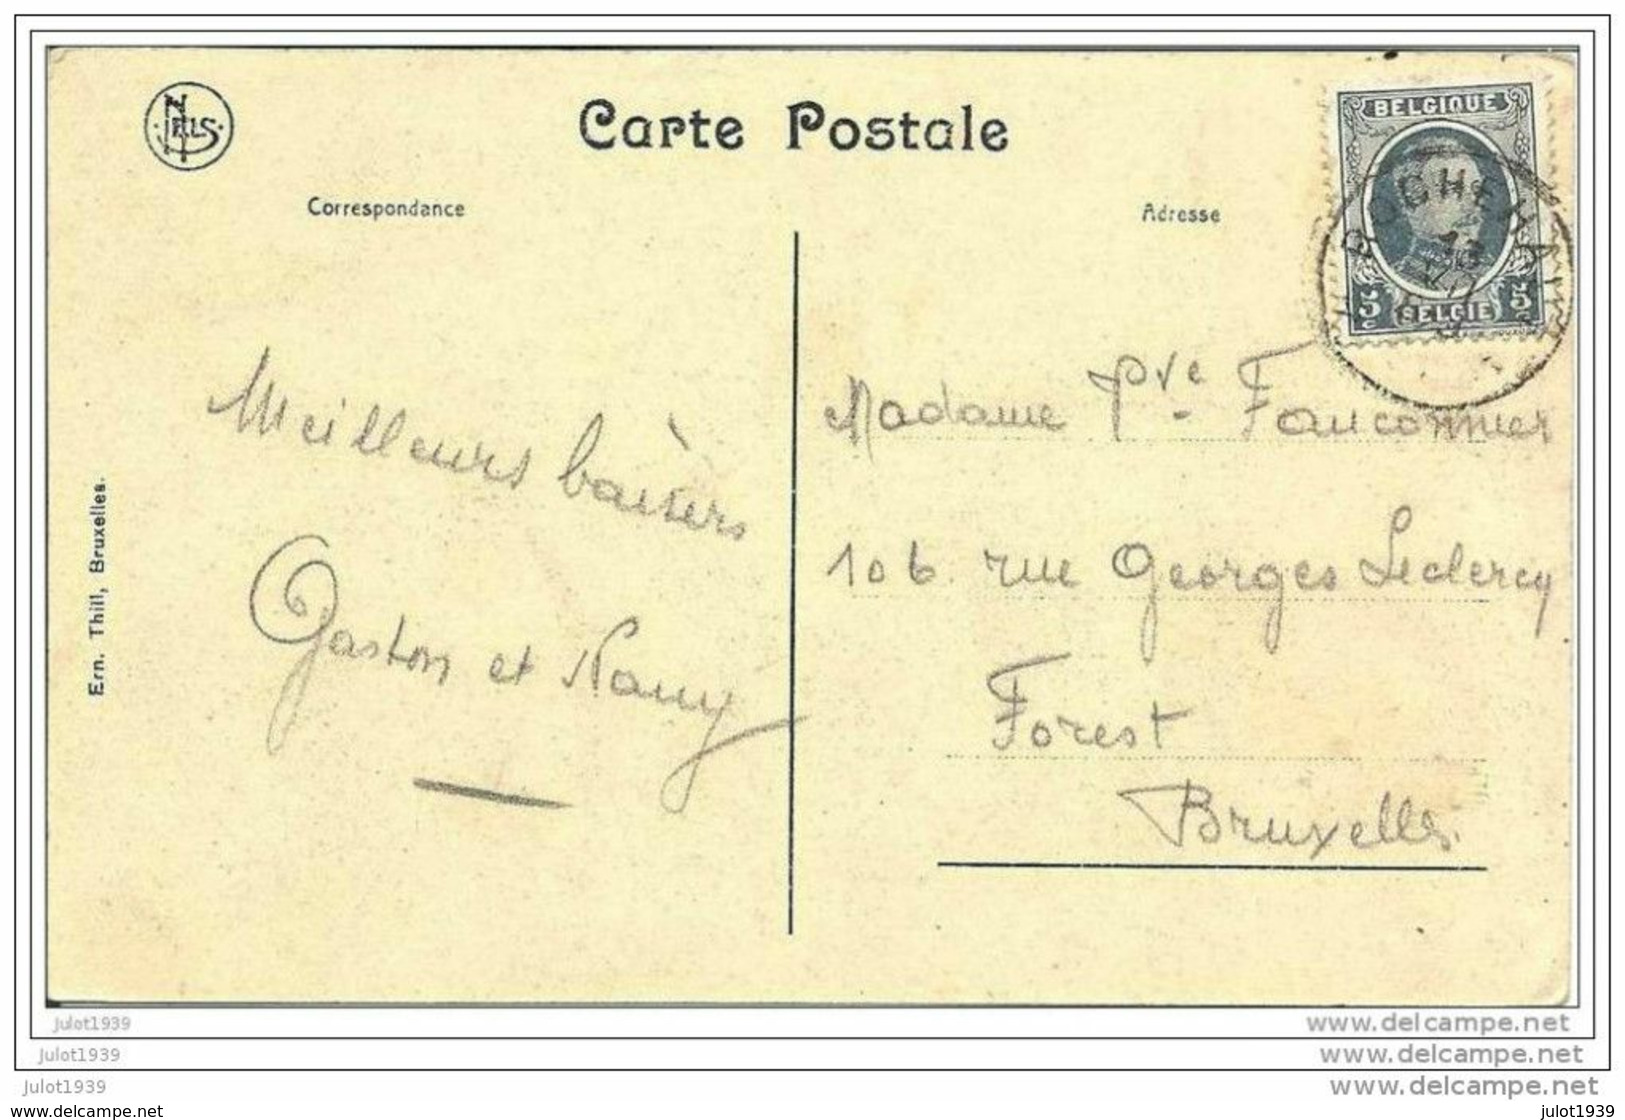 NELS
Carte Postale
Correspondance
Adresse
BELGIQUE
5c BELGIE 5c
Meilleurs baisers
Gaston et Nany
Madame Pve Fauconnier
106 rue Georges Leclercq
Forest
Bruxelles.
Ern. Thill, Bruxelles.
julot1939
julot1939
julot1939
www.delcampe.net
www.delcampe.net
www.delcampe.net
www.delcampe.net
julot1939